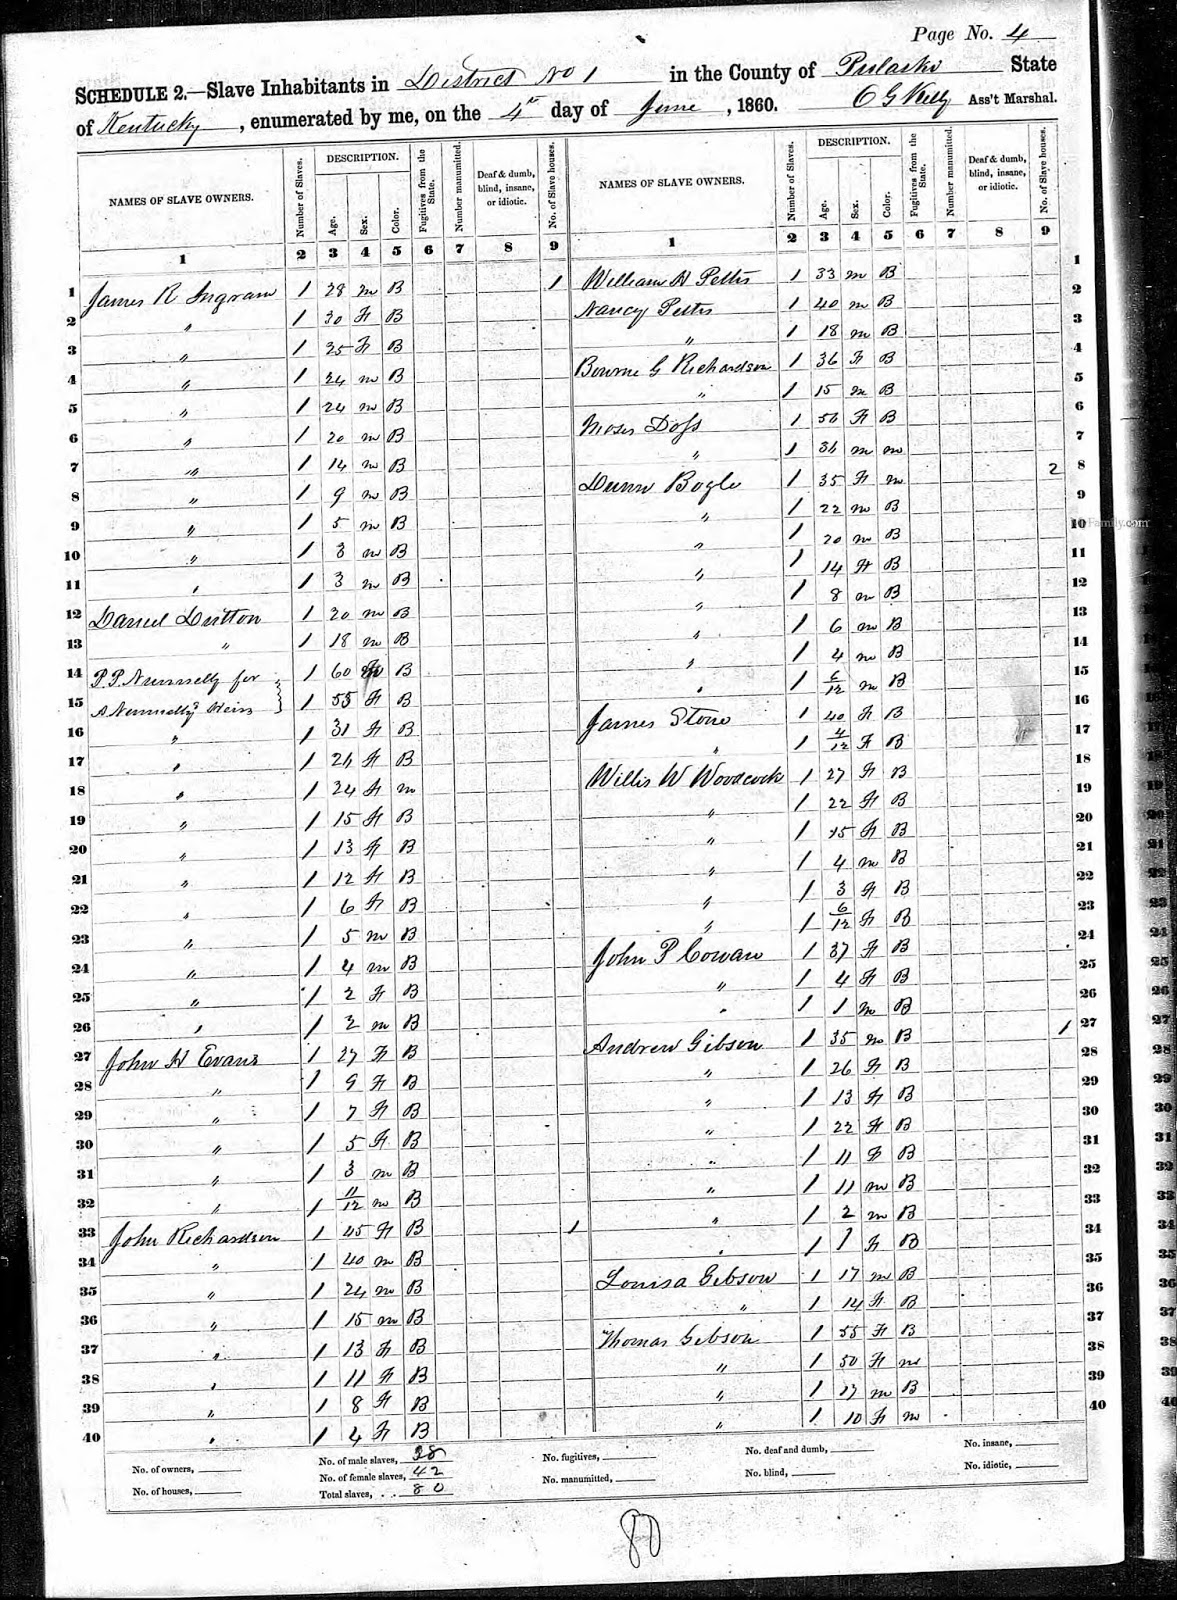 Page No. 4
SCHEDULE 2.—Slave Inhabitants in District No 1 in the County of Pulaski State
of Kentucky, enumerated by me, on the 4th day of June, 1860. Ass't Marshal.
NAMES OF SLAVE OWNERS. Number of Slaves. DESCRIPTION. Age. Sex. Color. Fugitives from the State. Number manumitted. Deaf & dumb, blind, insane, or idiotic. No. of Slave houses. NAMES OF SLAVE OWNERS. Number of Slaves. DESCRIPTION. Age. Sex. Color. Fugitives from the State. Number manumitted. Deaf & dumb, blind, insane, or idiotic. No. of Slave houses.
1 2 3 4 5 6 7 8 9 1 2 3 4 5 6 7 8 9
1 James R Ingram 1 28 m B 1 William H Pettis 1 33 m B 1
2 " 1 30 F B Nancy Pettis 1 40 m B 2
3 " 1 25 F B " 1 18 m B 3
4 " 1 24 m B Bourne G Richardson 1 36 F B 4
5 " 1 24 m B " 1 15 m B 5
6 " 1 20 m B Moses Doss 1 56 F B 6
7 " 1 14 m B " 1 36 m m 7
8 " 1 9 m B Bogle 1 35 F m 2 8
9 " 1 5 m B " 1 22 m B 9
10 " 1 3 m B " 1 20 m B 10
11 " 1 3 m B " 1 14 F B 11
12 Daniel Dutton 1 20 m B " 1 8 m B 12
13 " 1 18 m B " 1 6 m B 13
14 P. P. Nunnelly for 1 60 B " 1 4 m B 14
15 A Nunnelly's Heirs 1 55 F B " 1 6/12 m B 15
16 " 1 31 F B James Stone 1 40 F B 16
17 " 1 26 F B " 1 4/12 F B 17
18 " 1 24 F m Willis W Woodcock 1 27 F B 18
19 " 1 15 F B " 1 22 F B 19
20 " 1 13 F B " 1 15 F B 20
21 " 1 12 F B " 1 4 m B 21
22 " 1 6 F B " 1 3 F B 22
23 " 1 5 m B " 1 6/12 F B 23
24 " 1 4 m B John P Cowan 1 37 F B 24
25 " 1 2 F B " 1 4 F B 25
26 " 1 2 m B " 1 1 m B 26
27 John H Evans 1 27 F B Andrew Gibson 1 35 m B 1 27
28 " 1 9 F B " 1 26 F B 28
29 " 1 7 F B " 1 13 F B 29
30 " 1 5 F B " 1 22 F B 30
31 " 1 3 m B " 1 11 F B 31
32 " 1 11/12 m B " 1 11 m B 32
33 John Richardson 1 45 F B 1 " 1 2 m B 33
34 " 1 40 m B " 1 1 F B 34
35 " 1 24 m B Louisa Gibson 1 17 m B 35
36 " 1 15 m B " 1 14 F B 36
37 " 1 13 F B Thomas Gibson 1 55 F B 37
38 " 1 11 F B " 1 50 F m 38
39 " 1 8 F B " 1 17 m B 39
40 " 1 4 F B " 1 10 F m 40
No. of owners, No. of male slaves, 38 No. fugitives, No. deaf and dumb, No. insane,
No. of houses, No. of female slaves, 42 No. manumitted, No. blind, No. idiotic,
Total slaves, 80
80